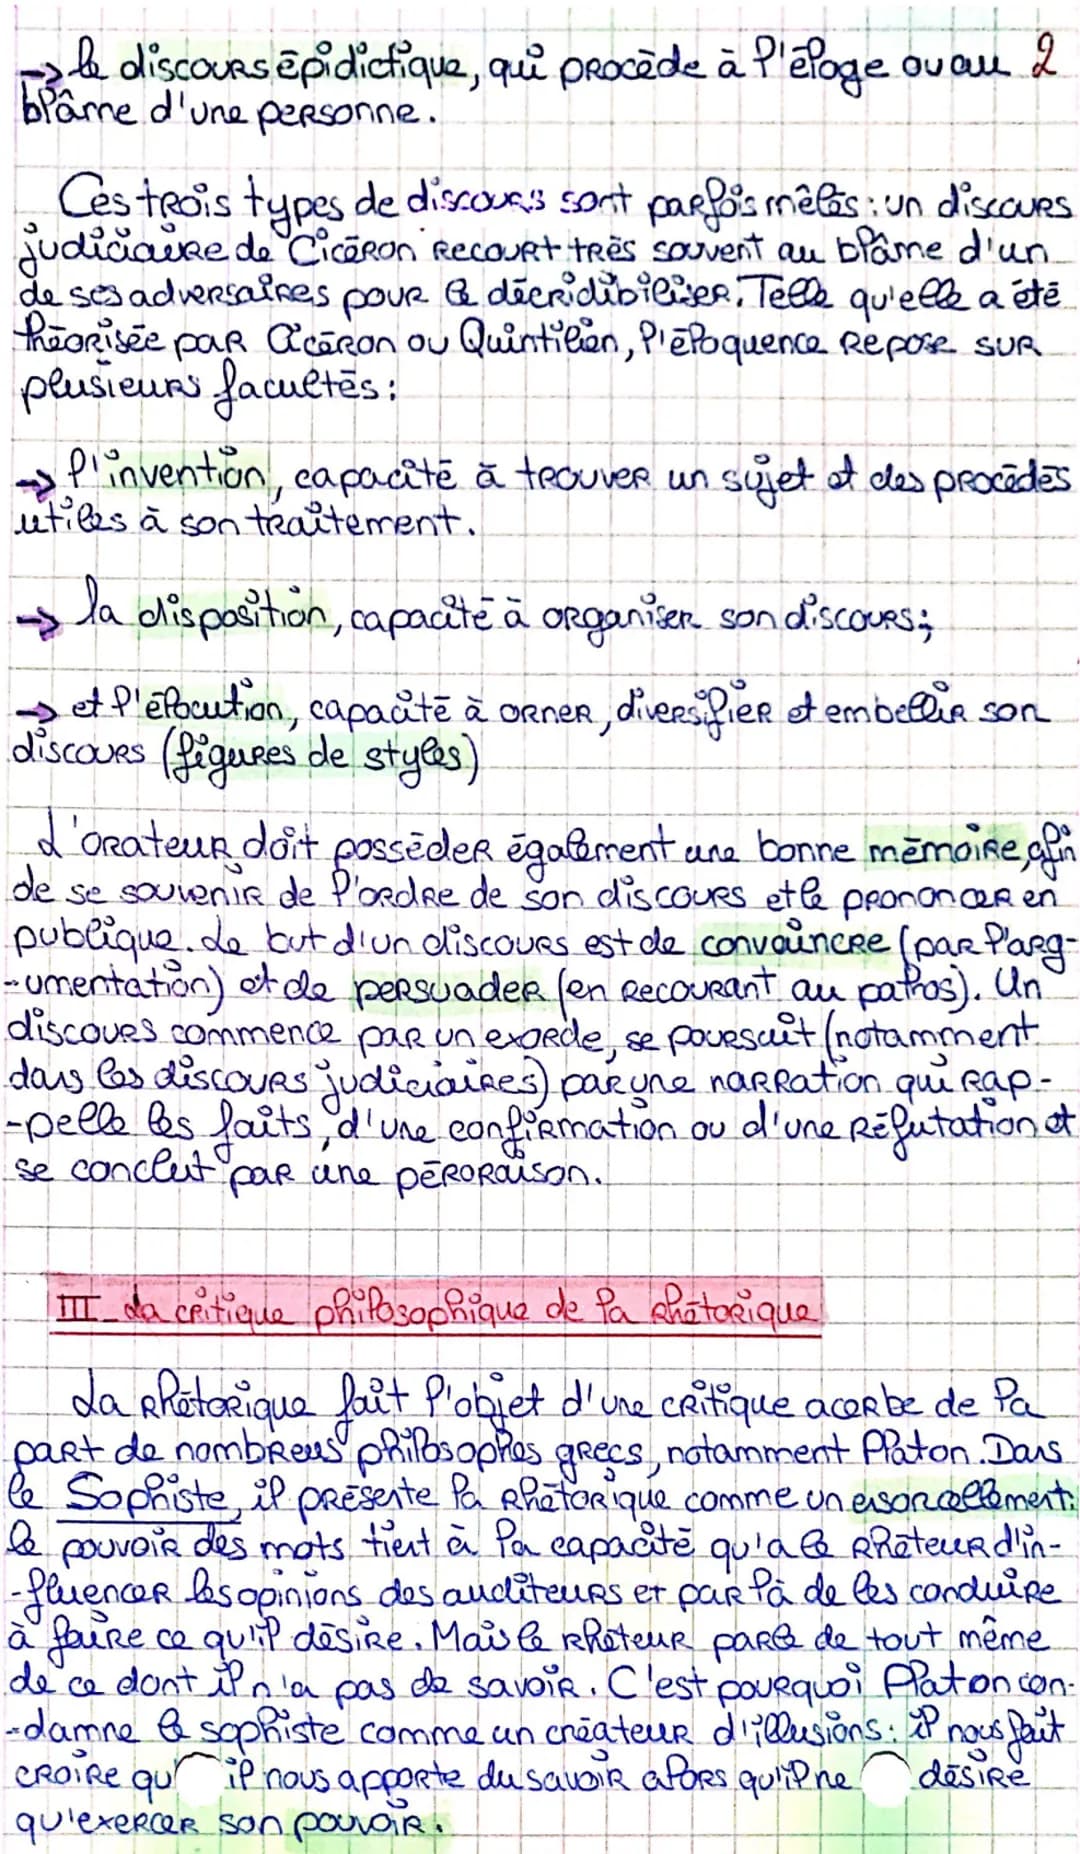 → le discours épidictique, qui procède à l'éloge ou au 2
blâme d'une personne.
Ces trois types de discours sont parfois mêlés : un discours
judiciaire de Cicéron recourt très souvent au blâme d'un
de ses adversaires pour le décridibiliser. Telle qu'elle a été
théorisée par Cicéron ou Quintilien, l'éloquence repose sur
plusieurs facultés :
→ l'invention, capacité à trouver un sujet et des procédés
utiles à son traitement.
→ la disposition, capacité à organiser son discours ;
→ et l'élocution, capacité à orner, diversifier et embellir son
discours (figures de styles)
L'orateur doit posséder également une bonne mémoire, afin
de se souvenir de l'ordre de son discours et le prononcer en
publique. Le but d'un discours est de convaincre (par l'arg-
-umentation) et de persuader (en recourant au pathos). Un
discours commence par un exorde, se poursuit (notamment
dans les discours judiciaires) par une narration qui rap-
-pelle les faits, d'une confirmation ou d'une réfutation et
se conclut par une péroraison.
III_ La critique philosophique de la rhétorique
La rhétorique fait l'objet d'une critique acerbe de la
part de nombreus philosophes grecs, notamment Platon. Dans
le Sophiste, il présente la rhétorique comme un ensorcellement :
le pouvoir des mots tient à la capacité qu'a le rhéteur d'in-
-fluencer les opinions des auditeurs et par là de les conduire
à faire ce qu'il désire. Mais le rhéteur parle de tout même
de ce dont il n'a pas de savoir. C'est pourquoi Platon con-
-damne le sophiste comme un créateur d'illusions : il nous fait
croire qu' il nous apporte du savoir alors qu'il ne désire
qu'exercer son pouvoir.